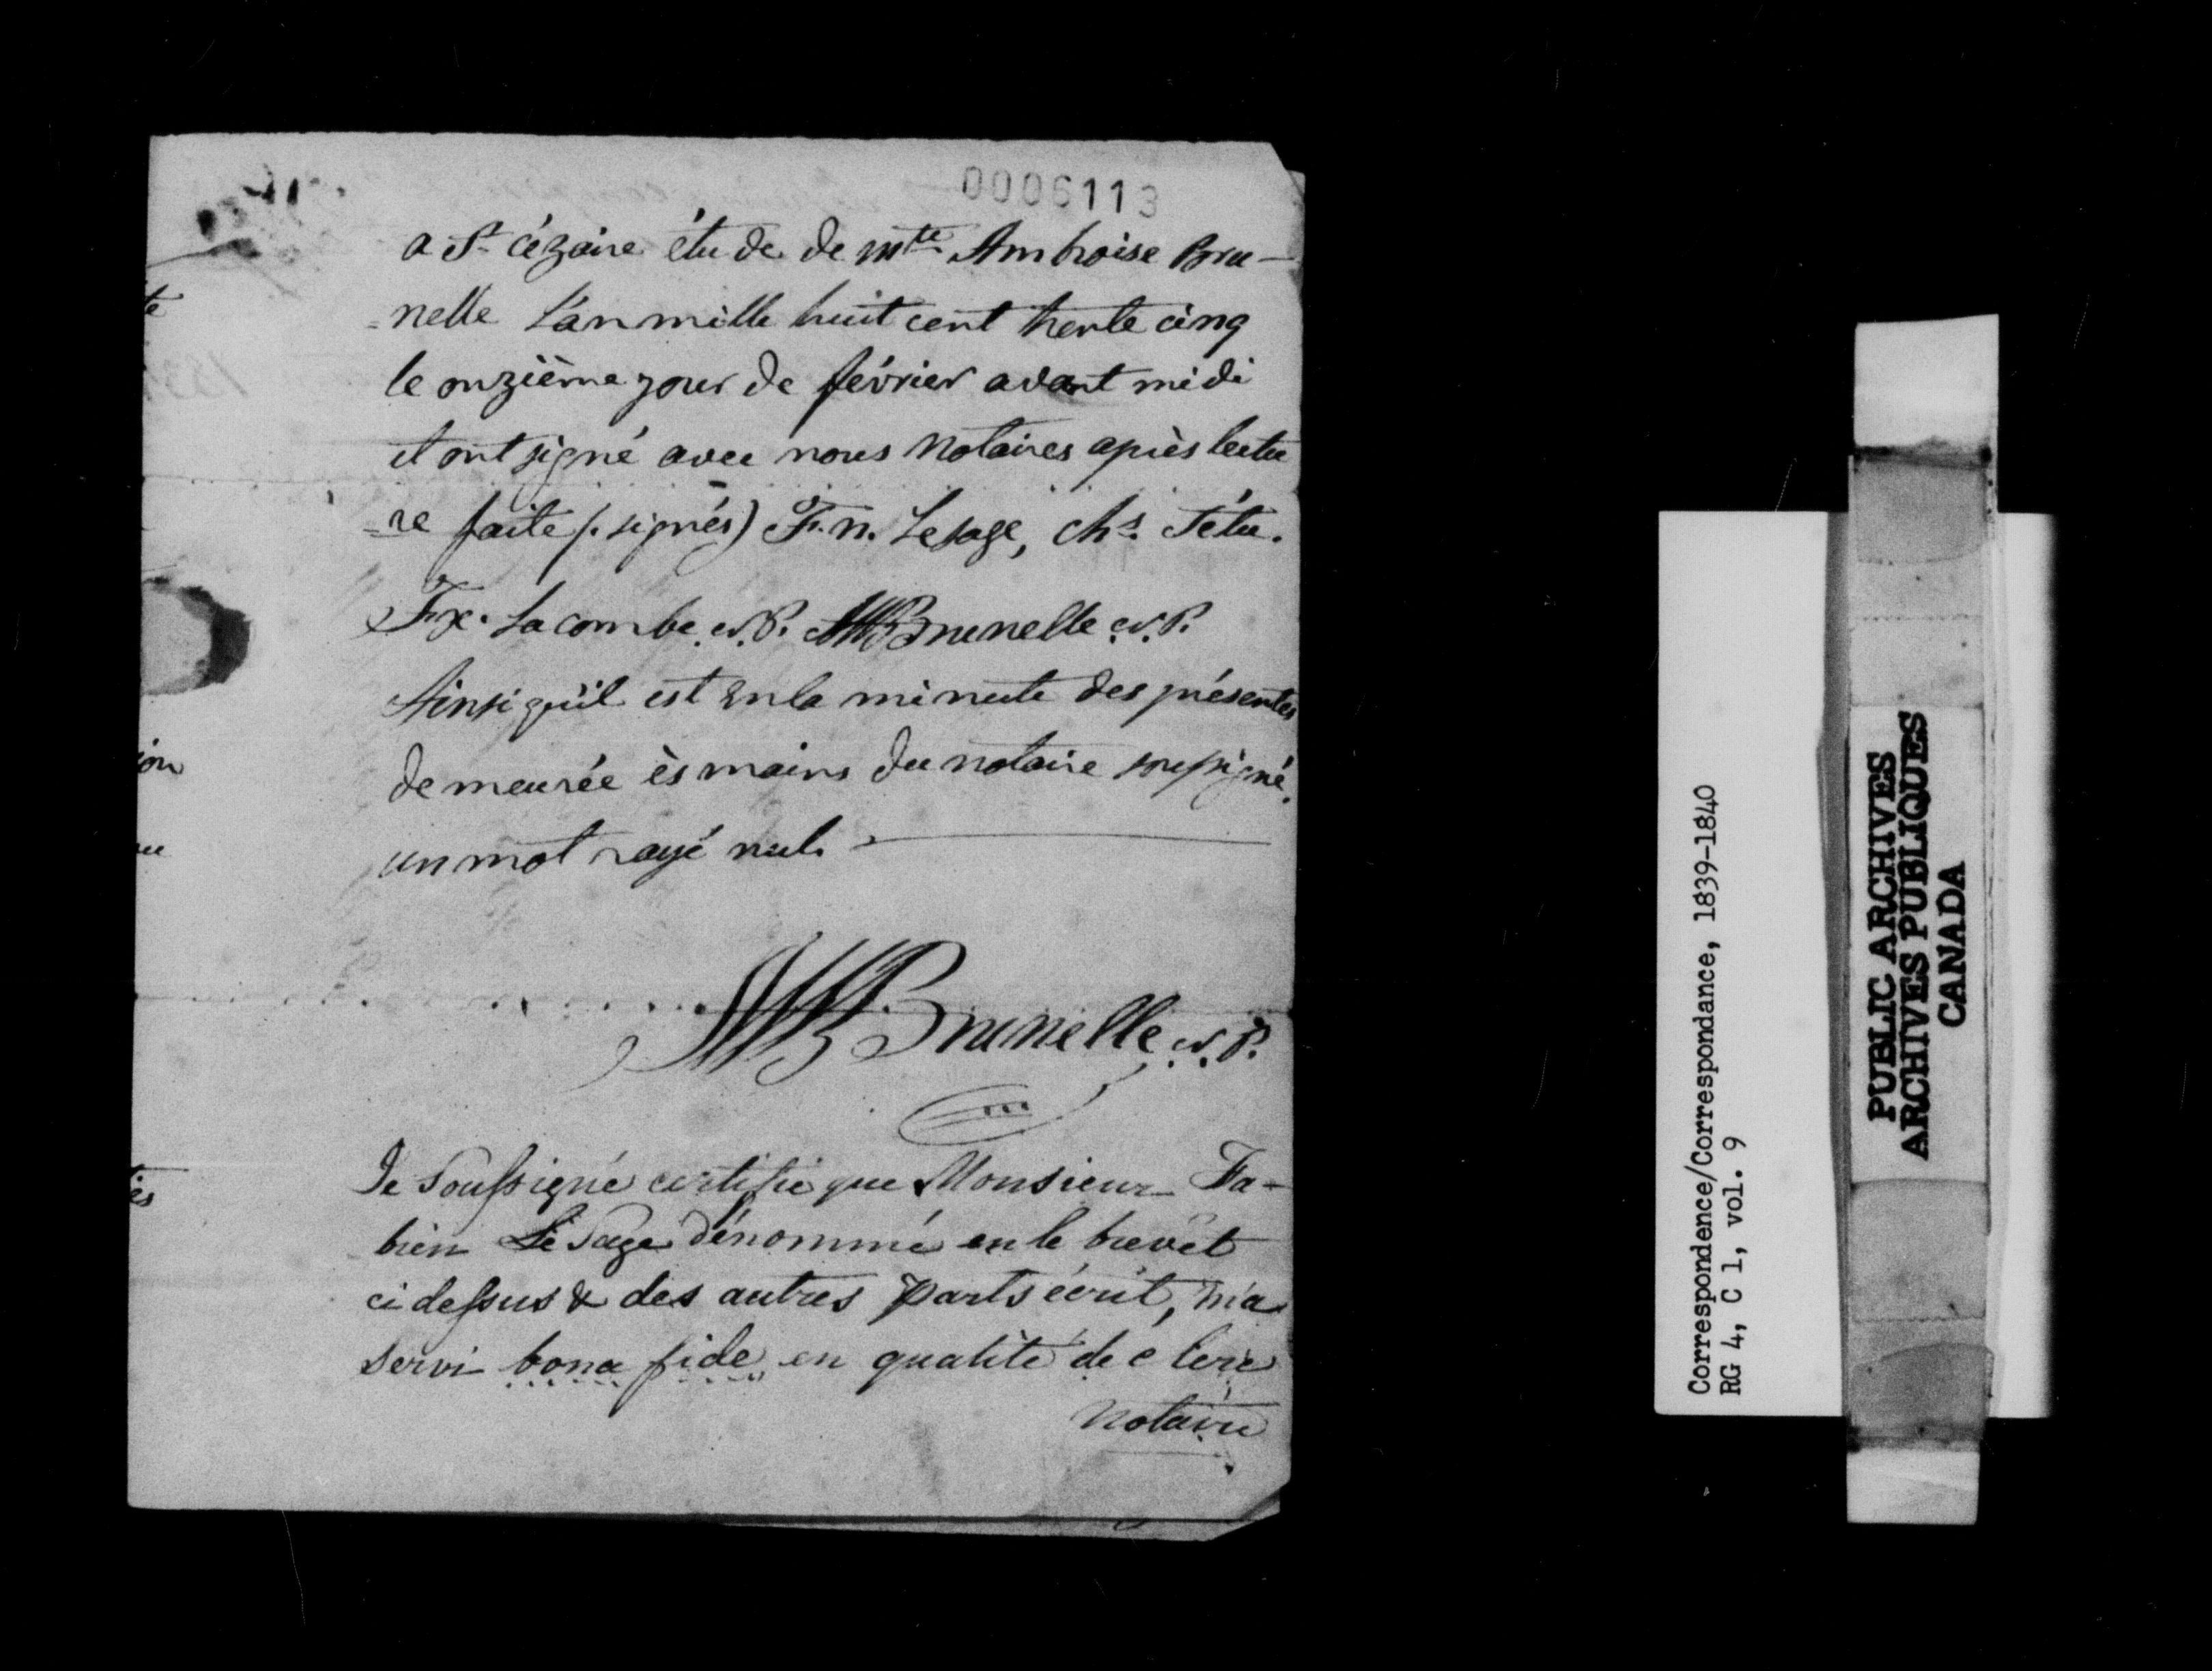 0006113
a St. cézaire étude de mtre Ambroise Bru-
=nelle L'an mille huit cent trente cinq
le onzième jour de février avant midi
et ont signé avec nous Notaires après lectu
=re faite (signés) F. n. Lesage, Chs. Tétu.
Fx. Lacombe N.P. Brunelle N.P.
Ainsi qu'il est en la minute des présentes
demeurée ès mains du notaire soussigné.
un mot rayé nul.
Brunelle N.P.
Je Soussigné certifie que Monsieur Fa-
bien LeSage dénommé en le brevêt
ci dessus & des autres parts écrit, m'a
servi bona fide en qualité de clerc
Notaire
te
ion
es
Correspondence/Correspondance, 1839-1840
RG 4, C 1, vol. 9
PUBLIC ARCHIVES
ARCHIVES PUBLIQUES
CANADA